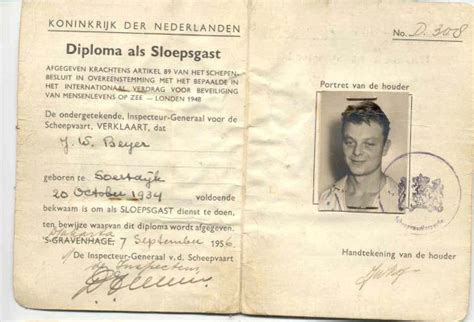 KONINKRIJK DER NEDERLANDEN
Diploma als Sloepsgast
AFGEGEVEN KRACHTENS ARTIKEL 89 VAN HET SCHEPEN-
BESLUIT IN OVEREENSTEMMING MET HET BEPAALDE
IN HET INTERNATIONAAL VERDRAG VOOR BEVEILIGING
VAN MENSENLEVENS OP ZEE — LONDEN 1948
De ondergetekende, Inspecteur-Generaal voor de
Scheepvaart, VERKLAART, dat
J. W. Beyer
geboren te Soestdijk
20 October 1934 voldoende
bekwaam is om als SLOEPSGAST dienst te doen,
ten, bewijze waarvan dit diploma wordt afgegeven.
Djakarta
'S-GRAVENHAGE, 7 September 1956
De Inspecteur-Generaal v.d. Scheepvaart
de Inspecteur
No. D. 308
Portret van de houder
Handtekening van de houder